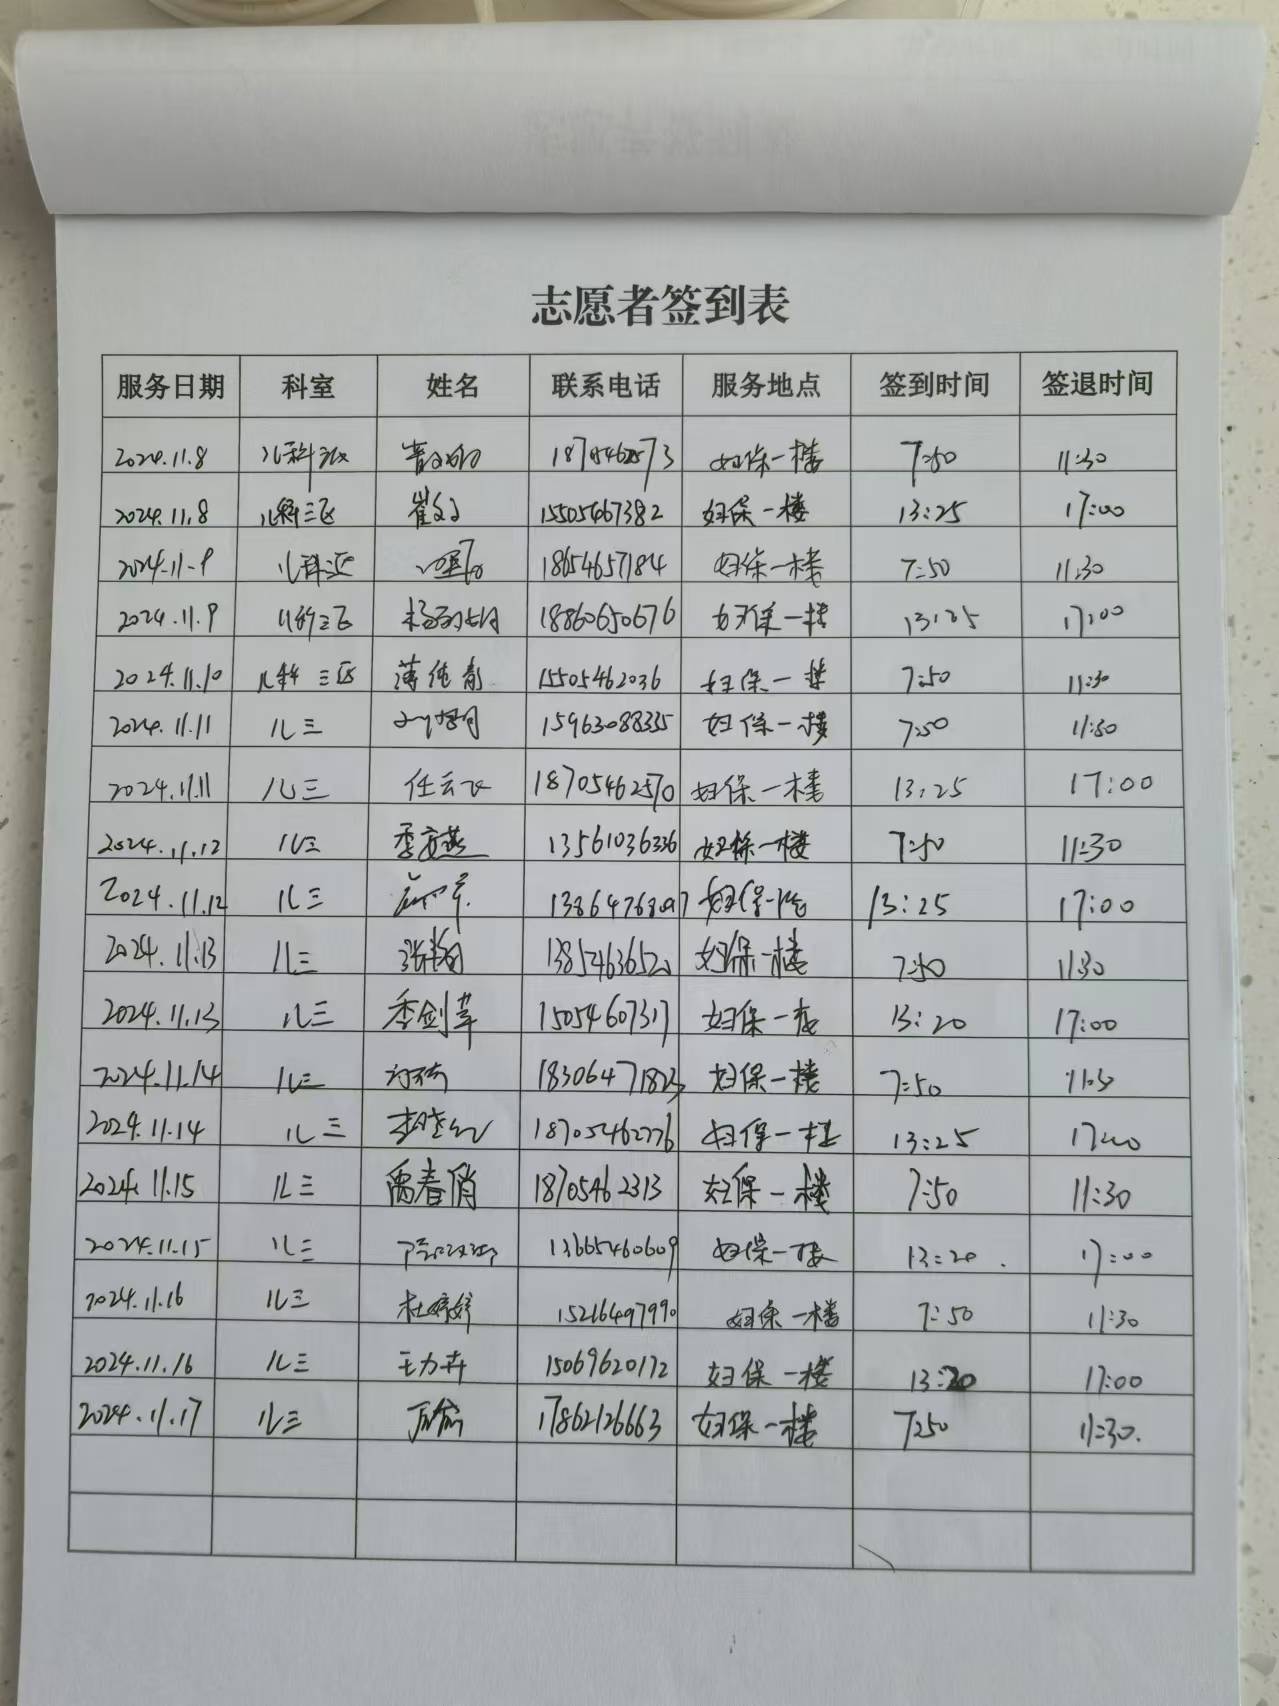 志愿者签到表
服务日期 科室 姓名 联系电话 服务地点 签到时间 签退时间
2024.11.8 儿科三区 妇保一楼 7:50 11:30
2024.11.8 儿科三区 15505467382 妇保一楼 13:25 17:00
2024.11.9 儿科三区 18654657184 妇保一楼 7:50 11:30
2024.11.9 儿科三区 18860650676 妇保一楼 13:25 17:00
2024.11.10 儿科三区 薄纯青 15505462036 妇保一楼 7:50 11:30
2024.11.11 儿三 15963088335 妇保一楼 7:50 11:30
2024.11.11 儿三 任云飞 18705462570 妇保一楼 13:25 17:00
2024.11.12 儿三 13561036336 妇保一楼 7:50 11:30
2024.11.12 儿三 妇保一楼 13:25 17:00
2024.11.13 儿三 妇保一楼 7:50 11:30
2024.11.13 儿三 季剑苹 15054607317 妇保一楼 13:20 17:00
2024.11.14 儿三 18306471823 妇保一楼 7:50 11:30
2024.11.14 儿三 18705462776 妇保一楼 13:25 17:00
2024.11.15 儿三 禹春俏 18705462313 妇保一楼 7:50 11:30
2024.11.15 儿三 13665460609 妇保一楼 13:20 17:00
2024.11.16 儿三 杜婷婷 15216497990 妇保一楼 7:50 11:30
2024.11.16 儿三 王力卉 15069620172 妇保一楼 13:20 17:00
2024.11.17 儿三 17862126663 妇保一楼 7:50 11:30.